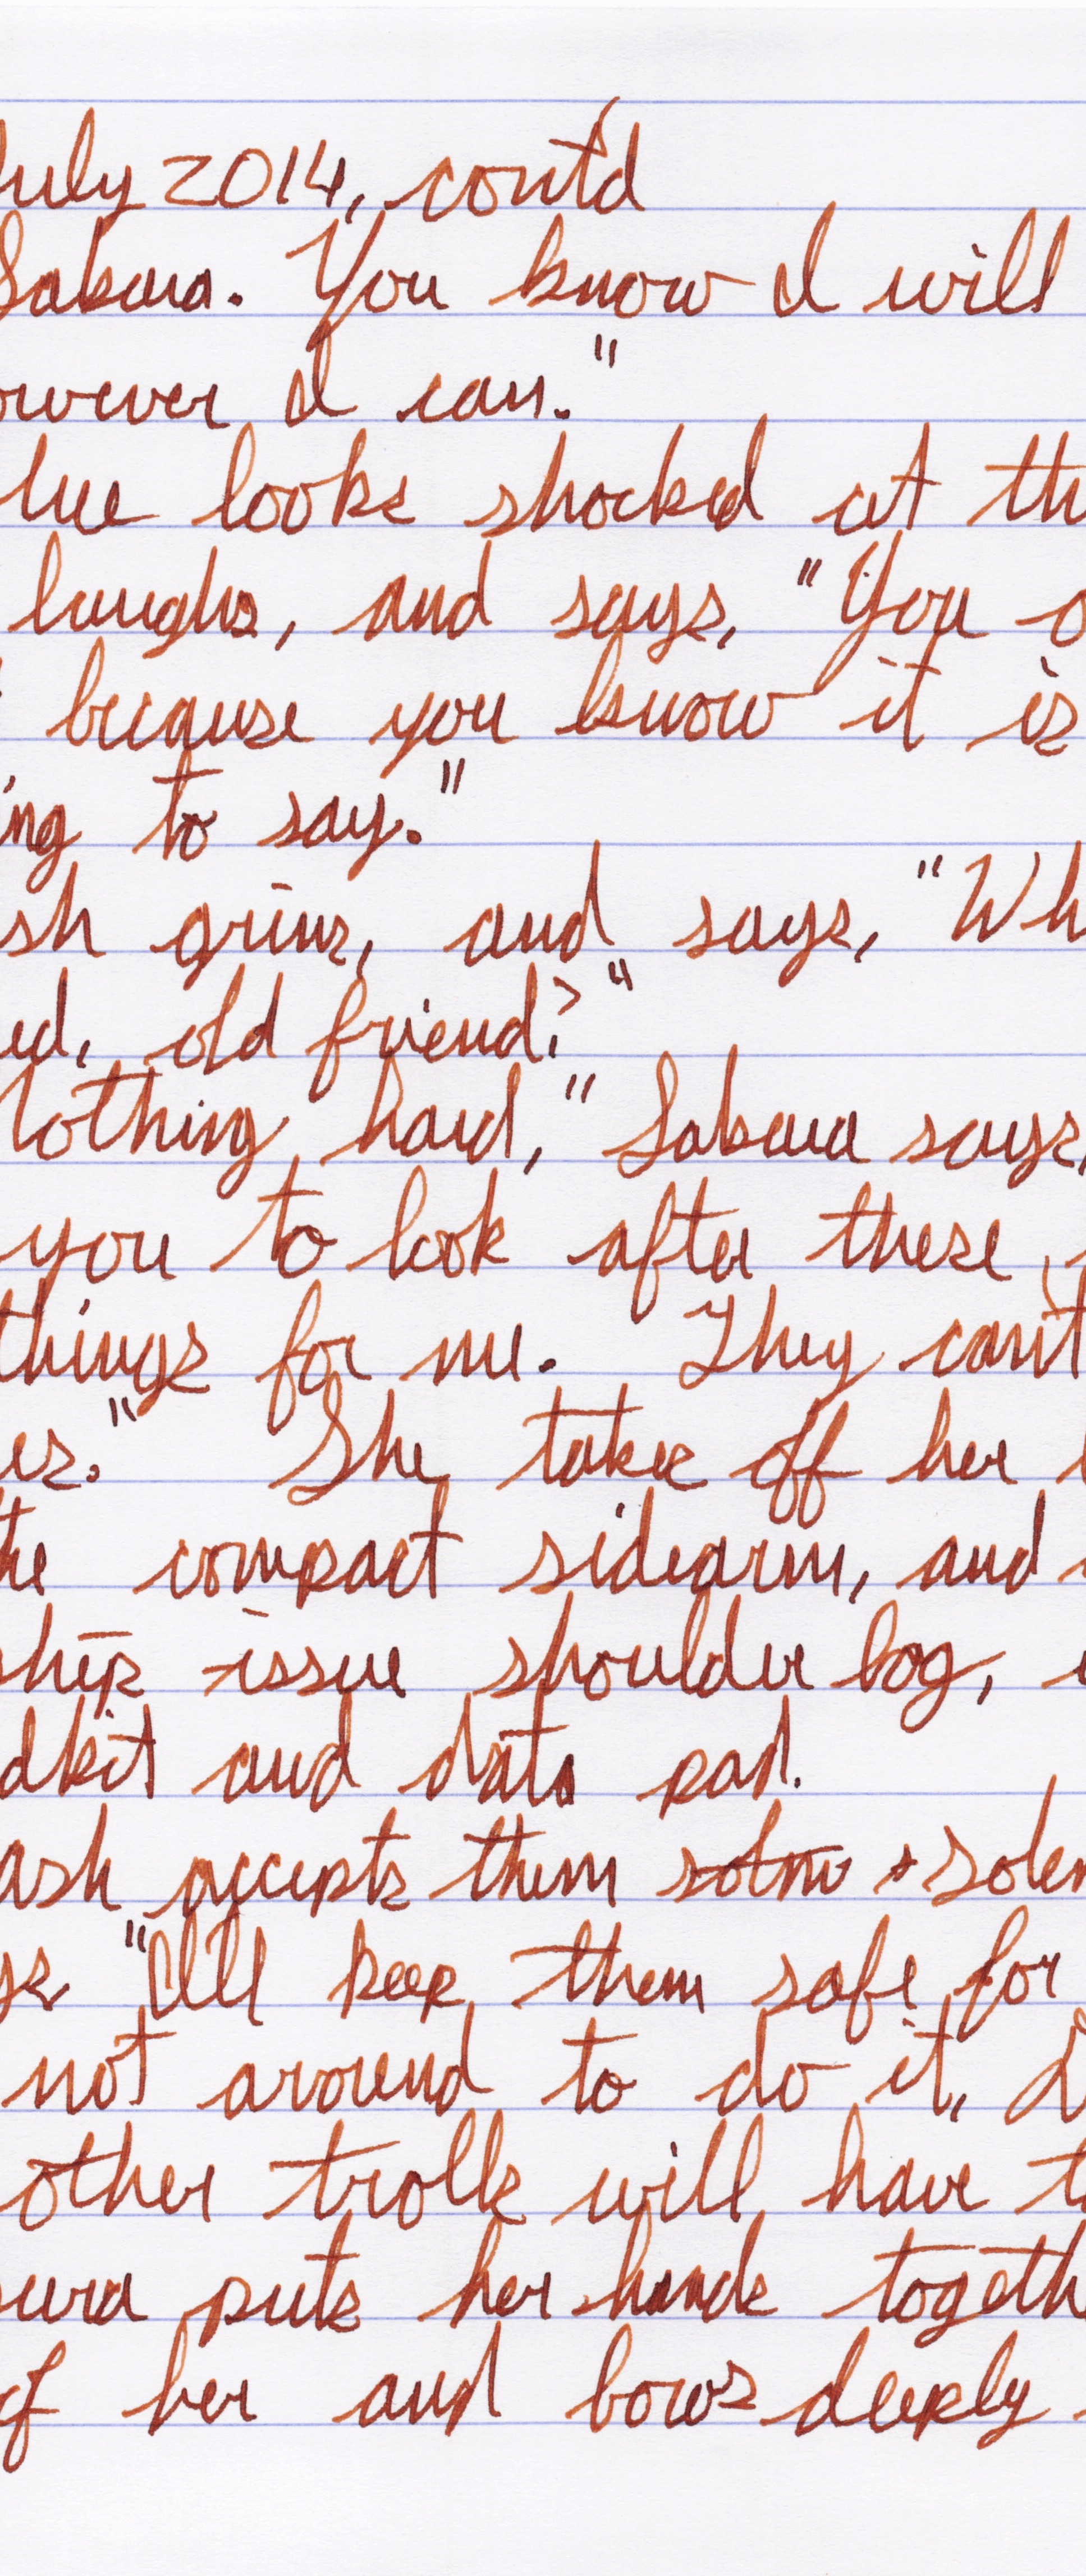 July 2014, cont'd
Sakura. You know I will
owever I can."
looks shocked at th
laughs, and says, "You
because you know it is
ing to say."
sh grins, and says, "Wh
ed, old friend?"
Nothing hard," Sakura says,
you to look after these
things for me. They can't
es." She takes off her
the compact sidearm, and
ship issue shoulder bag,
dkit and data pad.
ash accepts them solm & solem
ys "I'll keep them safe for
not around to do it,
other trolls will have t
kura puts her hands togethe
of her and bows deeply